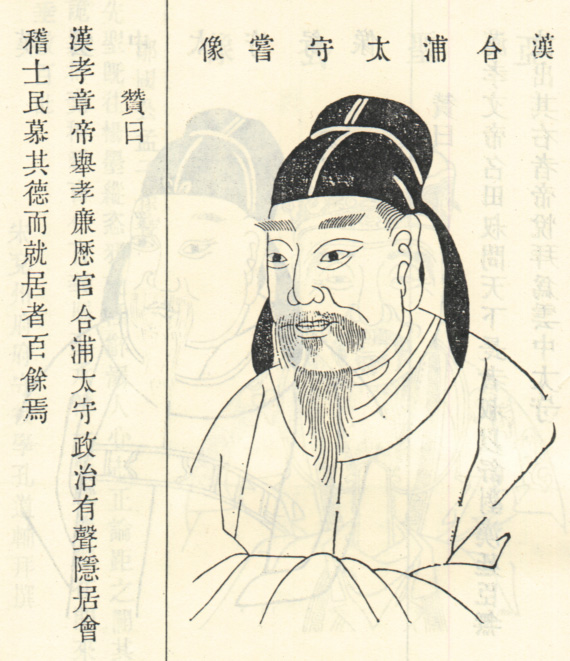 漢合浦太守嘗像
贊曰
漢孝章帝舉孝廉歷官合浦太守政治有聲隱居會
稽士民慕其德而就居者百餘焉